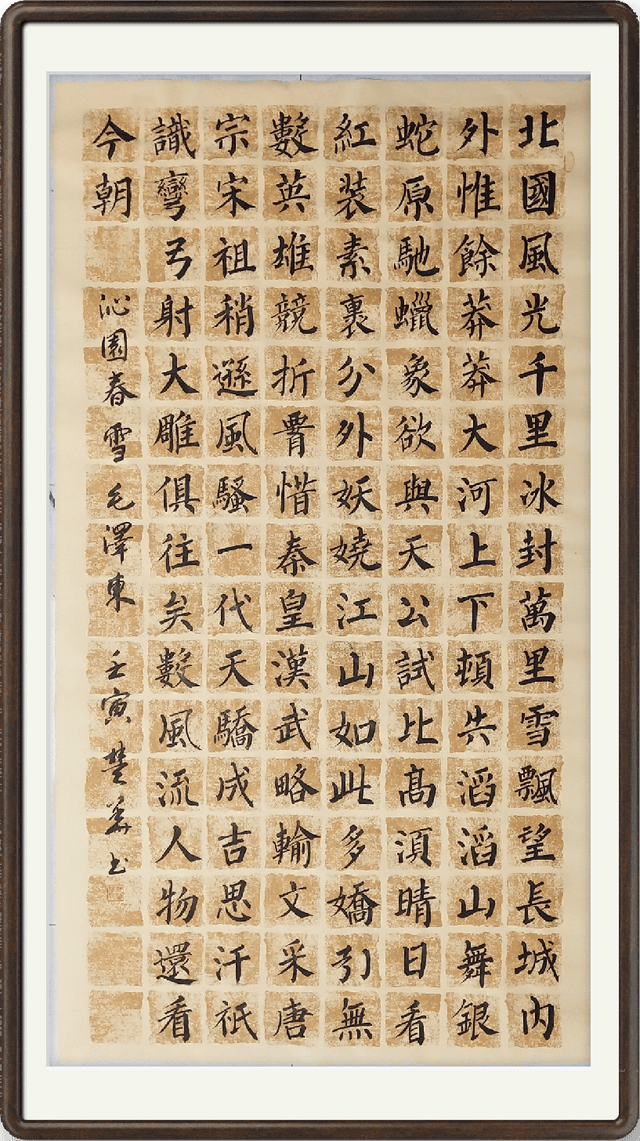 北國風光千里冰封萬里雪飄望長城内
外惟餘莽莽大河上下頓失滔滔山舞銀
蛇原馳蠟象欲與天公試比高須晴日看
紅装素裹分外妖嬈江山如此多嬌引無
數英雄競折腰惜秦皇漢武略輸文采唐
宗宋祖稍遜風騷一代天驕成吉思汗祇
識彎弓射大雕俱往矣數風流人物還看
今朝 沁園春雪 毛澤東 壬寅 楚 书